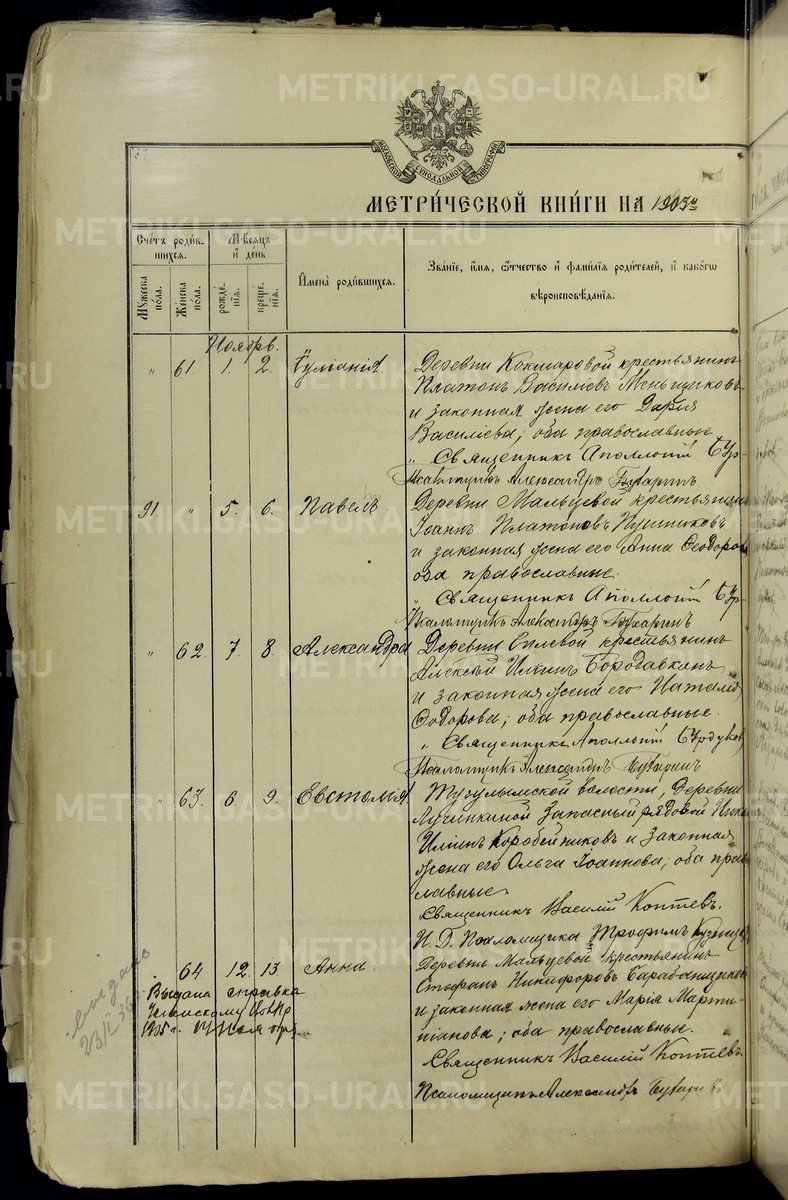 METRIKI.GASO-URAL.RU
МОСКОВСКОЙ СѴНОДАЛЬНОЙ ТИПОГРАФІИ
МЕТРИ́ЧЕСКОЙ КНИ́ГИ НА 1903 г.
Сче́тъ роди́вшихся.
Мѣ́сяцъ и҆ день
Му́жеска по́ла.
Же́нска по́ла.
рожде́нїѧ.
креще́нїѧ.
И҆мена̀ роди́вшихся.
Зва́нїе, и҆́мѧ, ѻ҆́тчество и҆ фами́лїѧ роди́телей, и҆ како́гѡ
вѣроисповѣ́данїѧ.
Ноябрь.
„ 61. 1. 2. Іуліанія. Деревни Кокшаровой крестьянинъ
Платонъ Василіевъ Меньщиковъ
и законная жена его Дарія
Василіева; оба православные.
„ Священникъ Аполлоній Бур-
Псаломщикъ Александръ
91. „ 5. 6. Павелъ. Деревни Мальцевой крестьянинъ
Іоаннъ Платоновъ Пушниковъ
и законная жена его Анна Ѳеодоров
оба православные.
„ Священникъ Аполлоній Бур-
Псаломщикъ Александръ
„ 62. 7. 8. Александра Деревни крестьянинъ
Алексѣй Иліинъ Бородавкинъ
и законная жена его Наталія
Ѳеодорова; оба православные.
„ Священникъ Аполлоній Бурдуков
Псаломщикъ Александръ
„ 63. 6. 9. Евстолія. Тугулымской волости, деревни
Лучинкиной запасный рядовой
Иліинъ Коробейниковъ и законная
жена его Ольга Іоаннова; оба право
славные.
Священникъ Василій Коптевъ.
И. Д. Псаломщика Трофимъ Кузнецов
64 12. 13 Анна. Деревни Мальцевой крестьянинъ
Стефанъ Никифоровъ Барабанщиков
и законная жена его Марія Марти-
ніанова; оба православные.
Священникъ Василій Коптевъ.
Псаломщикъ Александръ
Выдана справка
выдано
23/II 36